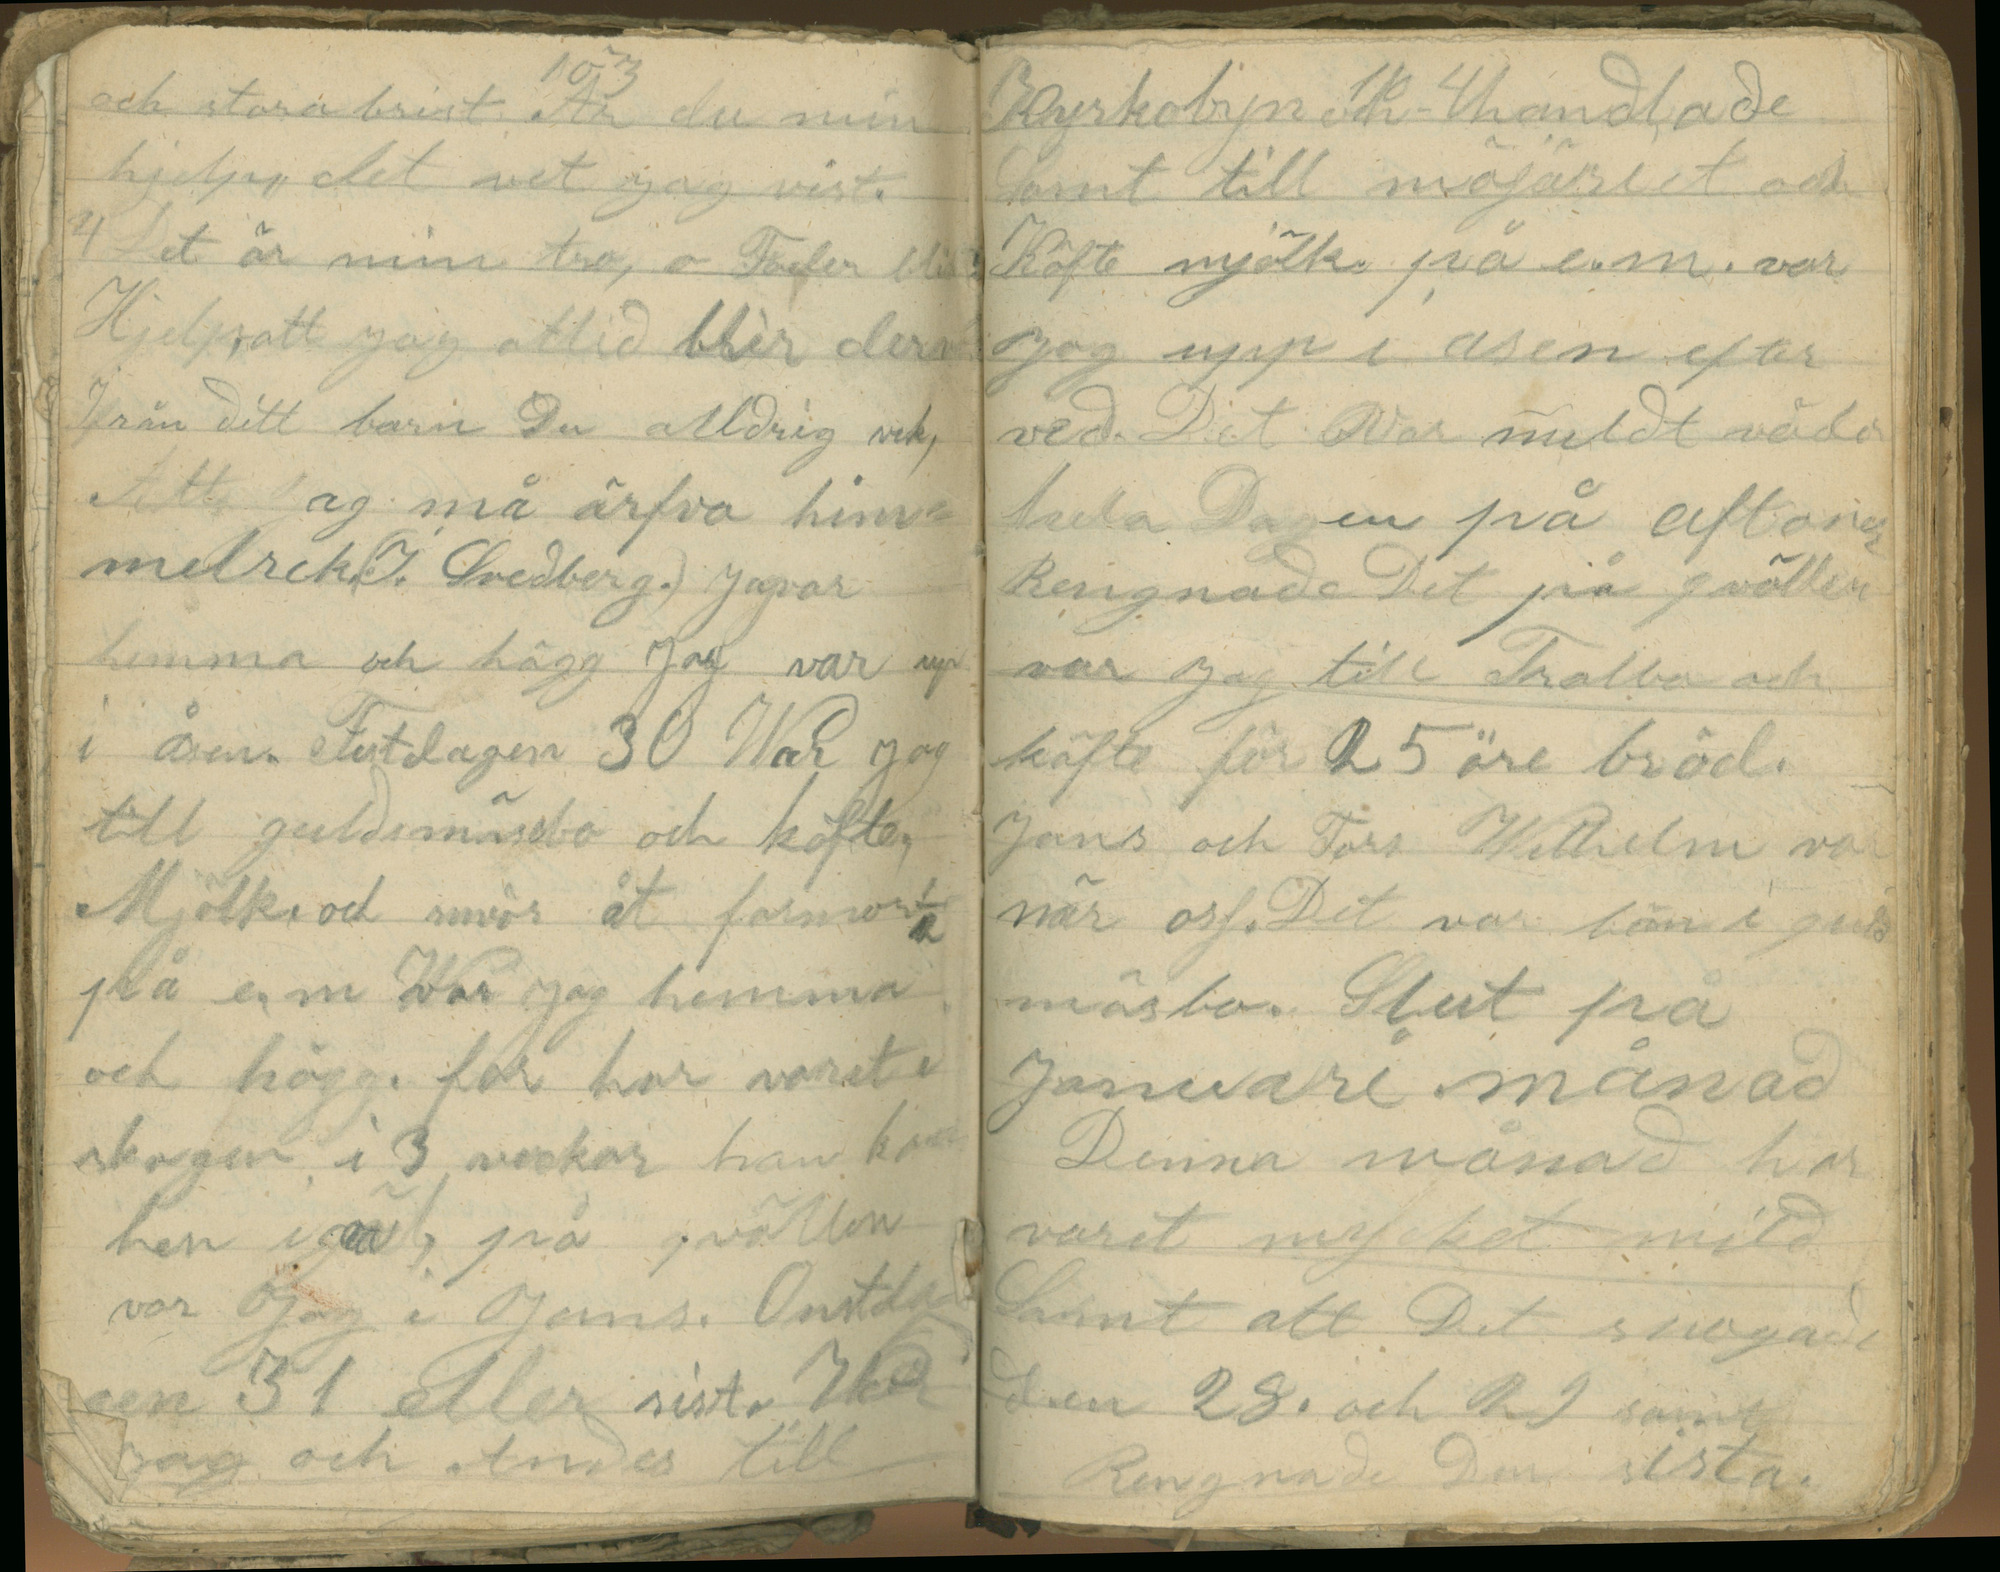 103
och stora brist. Är du min
hjelp, det vet jag vist.
4 Det är min tro, o Fader blid
Hjelp, att jag alltid blir derv
Ifrån ditt barn Du alldrig vek,
Att jag må ärfva him-
melrek. (J. Svedberg.) Jag var
hemma och högg Jag var up
i åsen. Tistdagen 30 War jag
till guldsmäsbo och köfte,
Mjölk. och smör åt farmor
på e. m War jag hemma
och högg. far har varit i
skogen i 3 veckor han kom
hen på qvällen
var Jag i Jans. Onstda
gen 31 eller sist. War
jag och Andes till
104
Kyrkobyn och handlade
Samt till mejäriet och
Köfte mjölk. på e.m. var
Jag upp i åsen efter
ved. Det War mildt väder
hela Dagen på aftonen
Rengnade Det på qvällen
var jag till Tralbo och
köfte för 25 öre bröd.
Jans och Fars Wilhelm var
när oss. Det var bön i guls
mäsbo. Slut på
Januari månad
Denna månad har
varit mycket mild
Samt att Det snogade
den 28. och 29 samt
Rengnade Den sista.